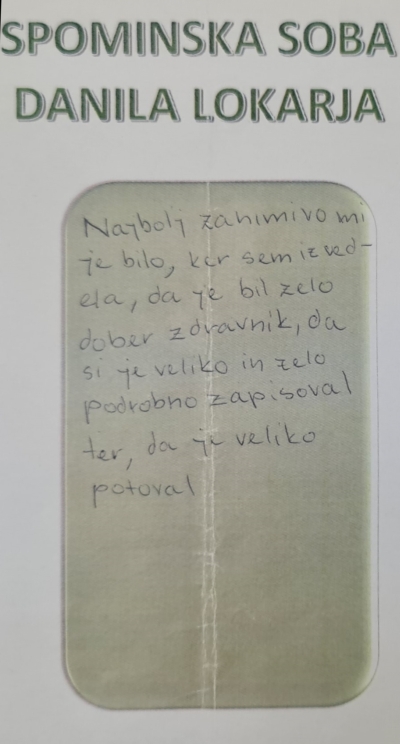 SPOMINSKA SOBA
DANILA LOKARJA
Najbolj zanimivo mi
je bilo, ker sem izved-
ela, da je bil zelo
dober zdravnik, da
si je veliko in zelo
podrobno zapisoval
ter, da je veliko
potoval